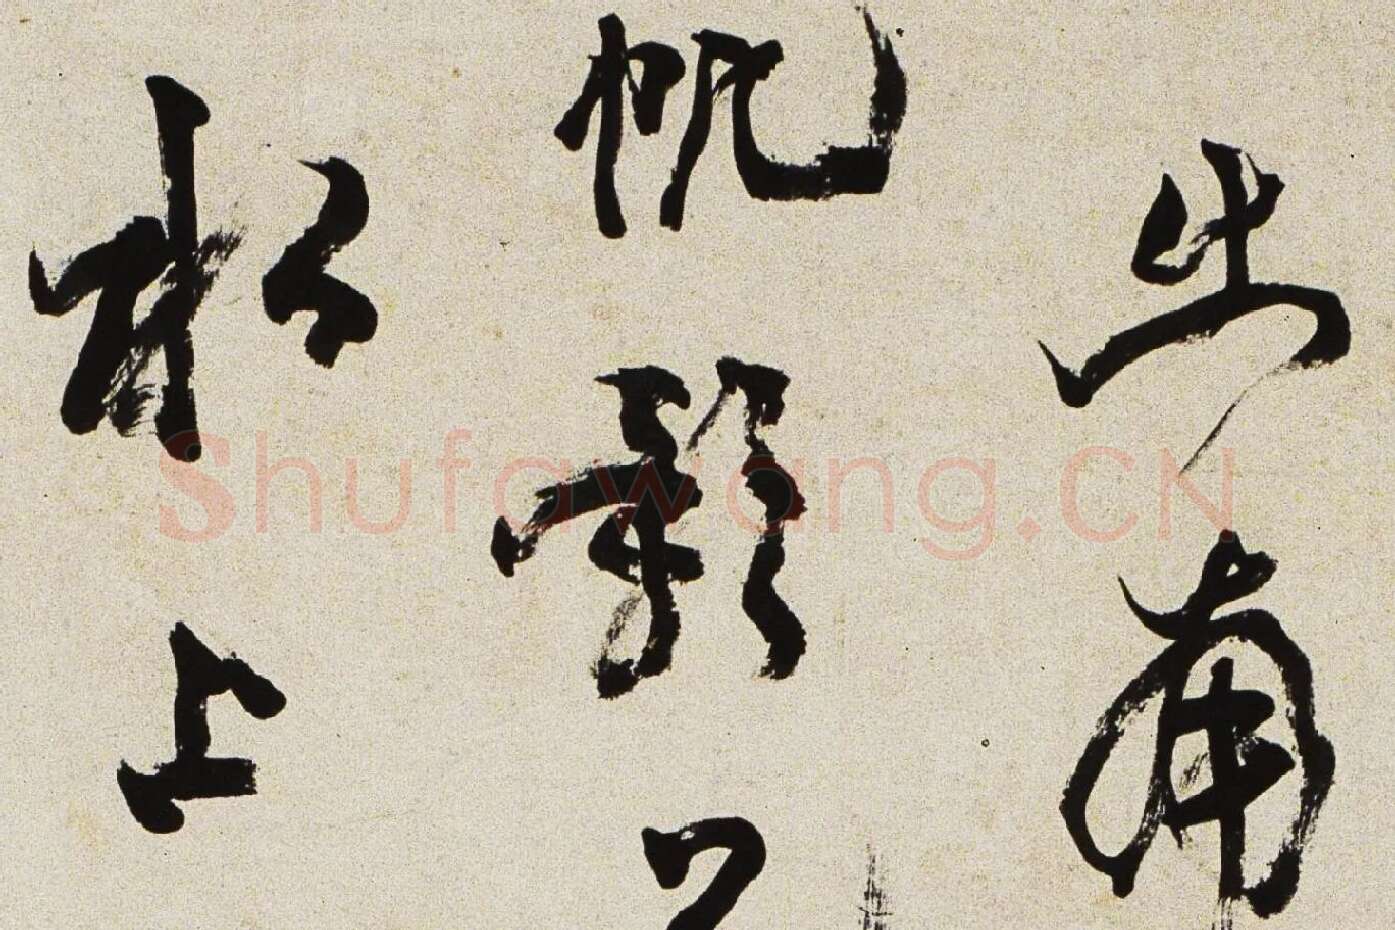 出南
帆影
松上
Shufawang.CN